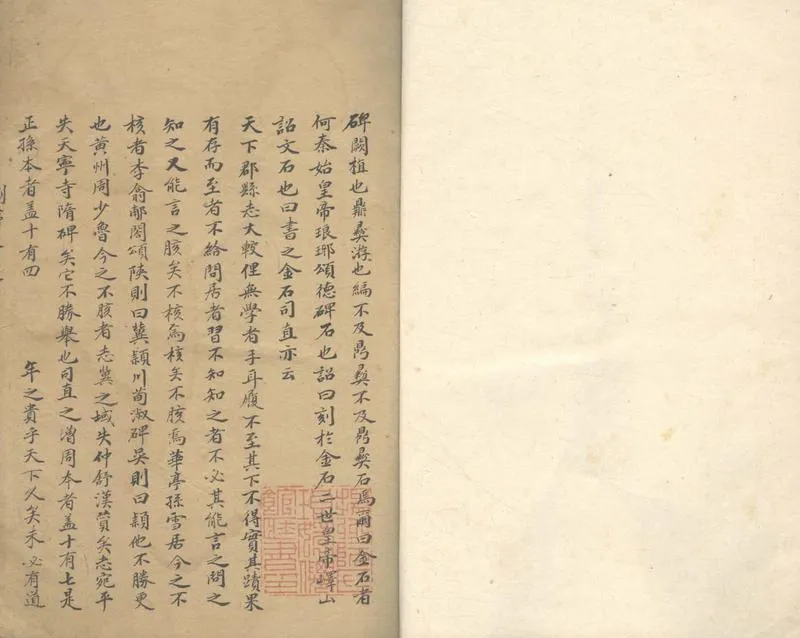 碑闕植也鼎彝游也編不及鼎彝不及鼎彝石爲爾曰金石者
何秦始皇帝琅琊頌德碑石也詔曰刻於金石二世皇帝嶧山
詔文石也曰書之金石司直亦云
天下郡縣志大較俚無學者手耳廢不至其下不得實其蹟果
有存而至者不給問居者習不知知之者不必其能言之問之
知之又能言之胲矣不核爲核矣不胲焉華亭孫雪居今之不
核者李翕郙閣頌陕則曰冀潁川荀淑碑吳則曰潁他不勝更
也黃州周少魯今之不胲者志冀之域失仲舒漢贊矣志宛平
失天寧寺隋碑矣它不勝舉也司直之潧周本者盖十有七是
正孫本者盖十有四
年之貴乎天下久矣未必有道